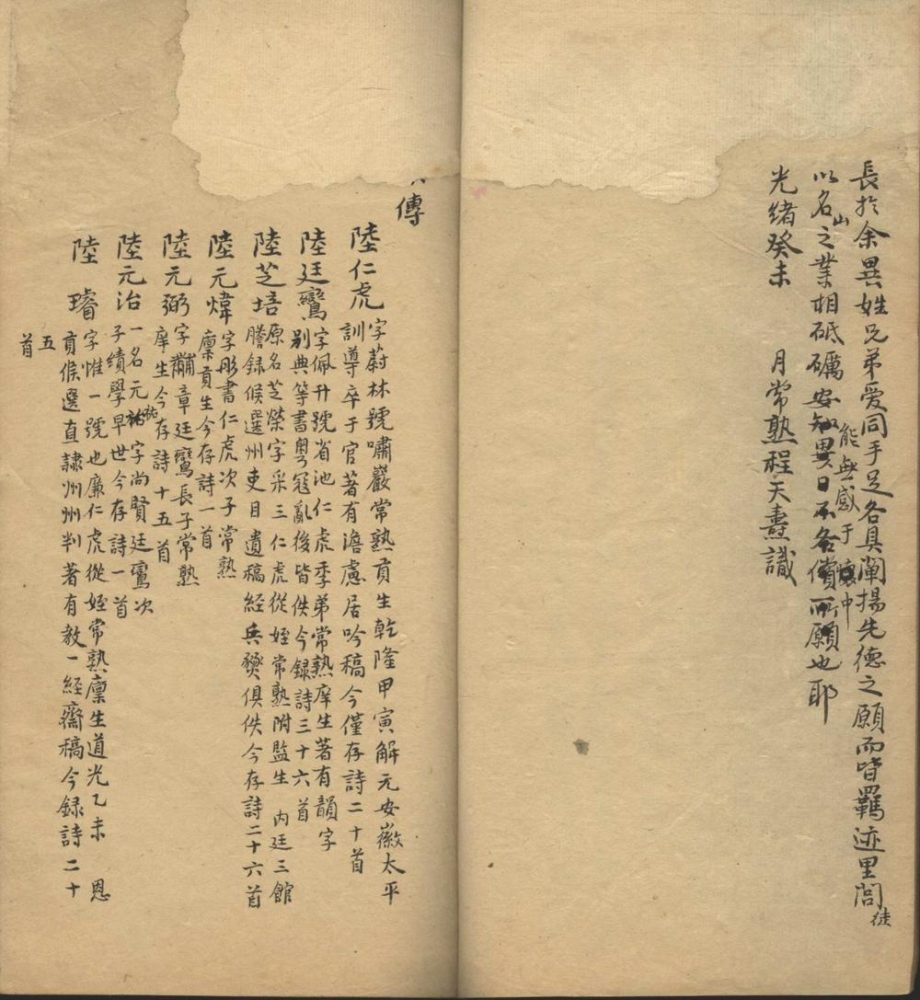 長於余異姓兄弟愛同手足各具闡揚先德之願而皆羈迹里閭徒
以名山之業相砥礪安能無感于中所願也耶
光緒癸未 月常熟程天燾識
傳
陸仁虎 字蔚林號嘯巖常熟貢生乾隆甲寅解元安徽太平
訓導卒于官著有澹慮居吟稿今僅存詩二十首
陸廷鸞 字佩升號省池仁虎季弟常熟庠生著有韻字
別典等書粵寇亂後皆佚今錄詩三十六首
陸芝培 原名芝榮字采三仁虎從姪常熟附監生 內廷三館
謄錄候選州吏目遺稿經兵燹俱佚今存詩二十六首
陸元煒 字彤書仁虎次子常熟
廩貢生今存詩一首
陸元弼 字黼章廷鸞長子常熟
庠生今存詩十五首
陸元治 一名元祐字尚賢廷鸞次
子績學早世今存詩一首
陸 璿 字惟一號也廉仁虎從姪常熟廩生道光乙未 恩
貢候選直隸州州判著有教一經齋稿今錄詩二十
五首